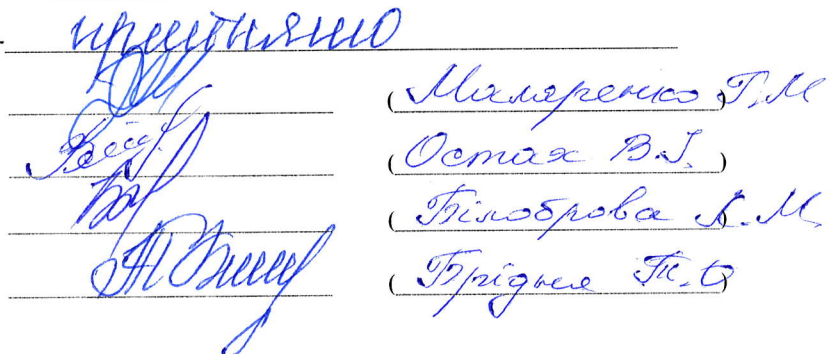 прийнято
(Маляренко Г.М
(Остах В.І.)
(Білоброва Л.М.
(Брідня Т.О)